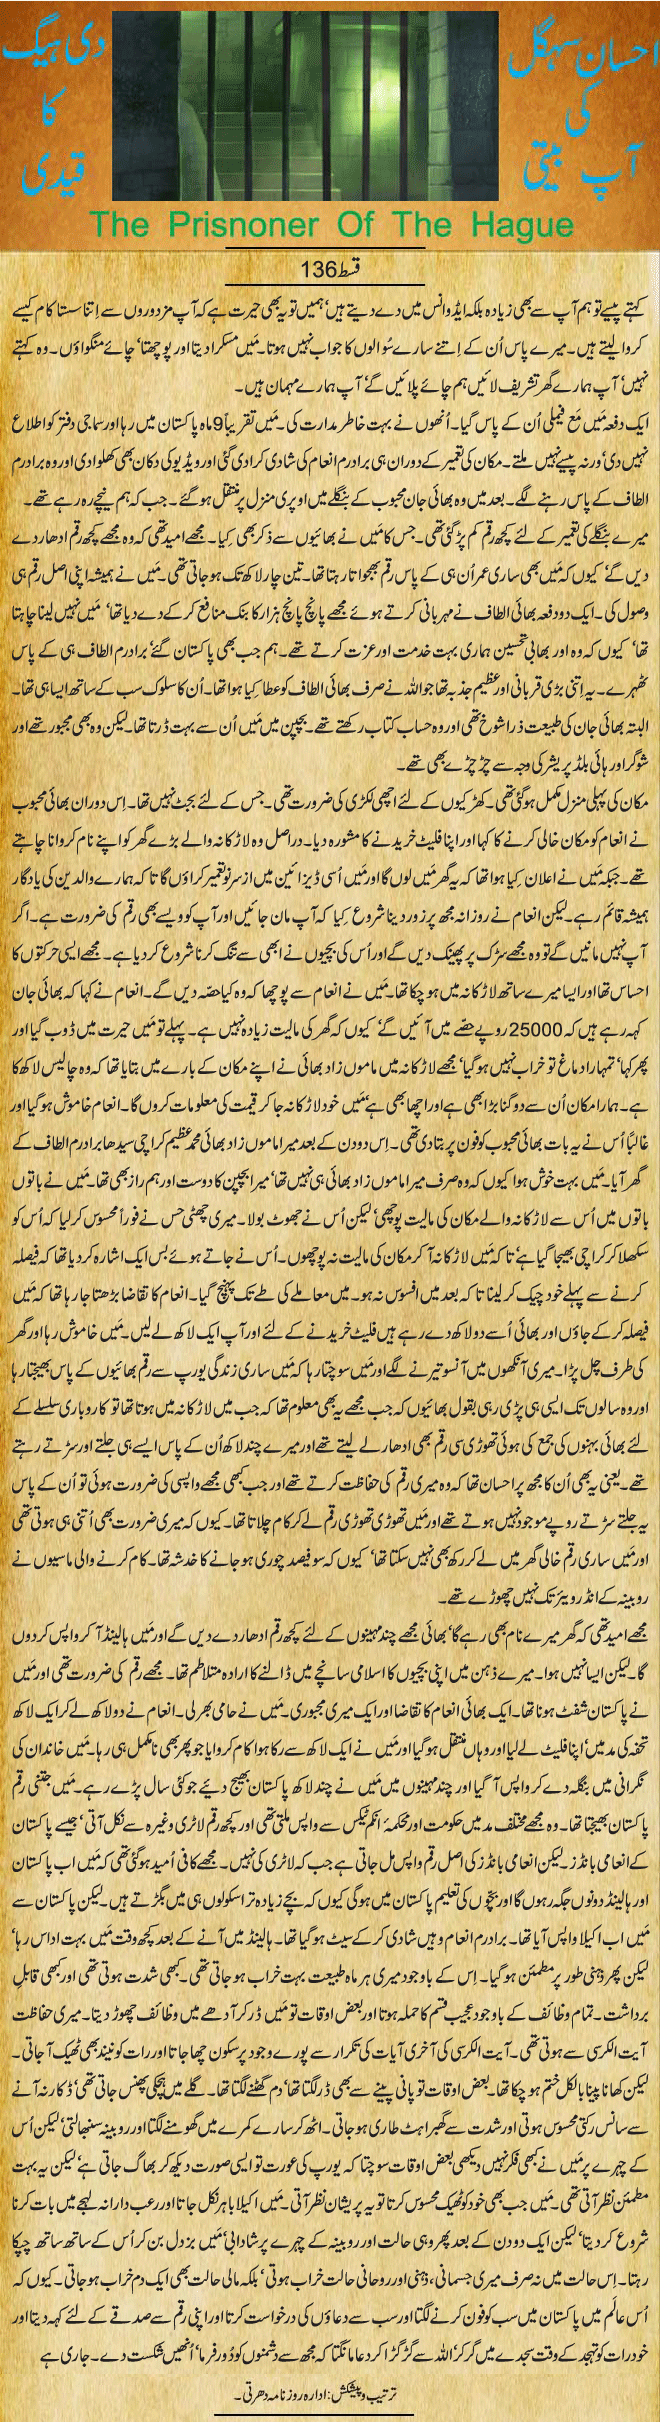 احسان سہگل
کی
آپ بیتی
دی ہیگ
کا
قیدی
The Prisnoner Of The Hague
قسط 136
کہتے پیسے تو ہم آپ سے بھی زیادہ بلکہ ایڈوانس میں دے دیتے ہیں‘ ہمیں تو یہ بھی حیرت ہے کہ آپ مزدوروں سے اِتنا سستا کام کیسے
کروا لیتے ہیں۔ میرے پاس اُن کے اِتنے سارے سُوالوں کا جواب نہیں ہوتا۔ مَیں مسکرا دیتا اور پوچھتا‘ چائے منگواؤں۔ وہ کہتے
نہیں‘ آپ ہمارے گھر تشریف لائیں ہم چائے پلائیں گے‘ آپ ہمارے مہمان ہیں۔
ایک دفعہ مَیں مَع فیملی اُن کے پاس گیا۔ اُنھوں نے بہت خاطر مدارت کی۔ مَیں تقریباً 9 ماہ پاکستان میں رہا اور سماجی دفتر کو اطلاع
نہیں دی‘ ورنہ پیسے نہیں ملتے۔ مکان کی تعمیر کے دوران ہی برادرم انعام کی شادی کرا دی گئی اور ویڈیو کی دکان بھی کھلوا دی اور وہ برادرم
الطاف کے پاس رہنے لگے۔ بعد میں وہ بھائی جان محبوب کے بنگلے میں اوپری منزل پر منتقل ہو گئے۔ جب کہ ہم نیچے رہ رہے تھے۔
میرے بنگلے کی تعمیر کے لئے کچھ رقم کم پڑ گئی تھی۔ جس کا مَیں نے بھائیوں سے ذکر بھی کِیا۔ مجھے امید تھی کہ وہ مجھے کچھ رقم ادھار دے
دیں گے‘ کیوں کہ مَیں بھی ساری عمر اُن ہی کے پاس رقم بھجواتا رہتا تھا۔ تین چار لاکھ تک ہو جاتی تھی۔ مَیں نے ہمیشہ اپنی اصل رقم ہی
وصول کی۔ ایک دو دفعہ بھائی الطاف نے مہربانی کرتے ہوئے مجھے پانچ پانچ ہزار کا بنک منافع کر کے دے دیا تھا‘ مَیں نہیں لینا چاہتا
تھا‘ کیوں کہ وہ اور بھابی تحسین ہماری بہت خدمت اور عزت کرتے تھے۔ ہم جب بھی پاکستان گئے‘ برادرم الطاف ہی کے پاس
ٹھہرے۔ یہ اِتنی بڑی قربانی اور عظیم جذبہ تھا جو اللہ نے صرف بھائی الطاف کو عطا کِیا ہوا تھا۔ اُن کا سلوک سب کے ساتھ ایسا ہی تھا۔
البتہ بھائی جان کی طبیعت ذرا شوخ تھی اور وہ حساب کتاب رکھتے تھے۔ بچپن میں مَیں اُن سے بہت ڈرتا تھا۔ لیکن وہ بھی مجبور تھے اور
شوگر اور ہائی بلڈ پریشر کی وجہ سے چڑچڑے بھی تھے۔
مکان کی پہلی منزل مکمل ہو گئی تھی۔ کھڑکیوں کے لئے اچھی لکڑی کی ضرورت تھی۔ جس کے لئے بجٹ نہیں تھا۔ اِس دوران بھائی محبوب
نے انعام کو مکان خالی کرنے کا کہا اور اپنا فلیٹ خریدنے کا مشورہ دیا۔ دراصل وہ لاڑکانہ والے بڑے گھر کو اپنے نام کروانا چاہتے
تھے۔ جبکہ مَیں نے اعلان کِیا ہوا تھا کہ یہ گھر مَیں لوں گا اور مَیں اُسی ڈیزائین میں از سرِ نو تعمیر کراؤں گا تا کہ ہمارے والدین کی یادگار
ہمیشہ قائم رہے۔ لیکن انعام نے روزانہ مجھ پر زور دینا شروع کِیا کہ آپ مان جائیں اور آپ کو ویسے بھی رقم کی ضرورت ہے۔ اگر
آپ نہیں مانیں گے تو وہ مجھے سڑک پر پھینک دیں گے اور اُس کی بچیوں نے ابھی سے تنگ کرنا شروع کر دیا ہے۔ مجھے ایسی حرکتوں کا
احساس تھا اور ایسا میرے ساتھ لاڑکانہ میں ہو چکا تھا۔ مَیں نے انعام سے پوچھا کہ وہ کیا حصّہ دیں گے۔ انعام نے کہا کہ بھائی جان
کہہ رہے ہیں کہ 25000 روپے حصّے میں آئیں گے‘ کیوں کہ گھر کی مالیت زیادہ نہیں ہے۔ پہلے تو مَیں حیرت میں ڈوب گیا اور
پھر کہا‘ تمہارا دماغ تو خراب نہیں ہو گیا‘ مجھے لاڑکانہ میں ماموں زاد بھائی نے اپنے مکان کے بارے میں بتایا تھا کہ وہ چالیس لاکھ کا
ہے۔ ہمارا مکان اُن سے دو گنا بڑا بھی ہے اور اچھا بھی ہے‘ مَیں خود لاڑکانہ جا کر قیمت کی معلومات کروں گا۔ انعام خاموش ہو گیا اور
غالباً اُس نے یہ بات بھائی محبوب کو فون پر بتا دی تھی۔ اِس دو دن کے بعد میرا ماموں زاد بھائی محمد عظیم کراچی سیدھا برادرم الطاف کے
گھر آیا۔ مَیں بہت خوش ہوا کیوں کہ وہ صرف میرا ماموں زاد بھائی ہی نہیں تھا‘ میرا بچپن کا دوست اور ہم راز بھی تھا۔ مَیں نے باتوں
باتوں میں اُس سے لاڑکانہ والے مکان کی مالیت پوچھی‘ لیکن اُس نے جھوٹ بولا۔ میری چھٹی حس نے فوراً محسوس کر لیا کہ اُس کو
سکھلا کر کراچی بھیجا گیا ہے‘ تا کہ مَیں لاڑکانہ آ کر مکان کی مالیت نہ پوچھوں۔ اُس نے جاتے ہوئے بس ایک اشارہ کر دیا تھا کہ فیصلہ
کرنے سے پہلے خود چیک کر لینا تا کہ بعد میں افسوس نہ ہو۔ میں معاملے کی طے تک پہنچ گیا۔ انعام کا تقاضا بڑھتا جا رہا تھا کہ مَیں
فیصلہ کر کے جاؤں اور بھائی اُسے دو لاکھ دے رہے ہیں فلیٹ خریدنے کے لئے اور آپ ایک لاکھ لے لیں۔ مَیں خاموش رہا اور گھر
کی طرف چل پڑا۔ میری آنکھوں میں آنسو تیرنے لگے اور مَیں سوچتا رہا کہ مَیں ساری زندگی یورپ سے رقم بھائیوں کے پاس بھیجتا رہا
اور وہ سالوں تک ایسی ہی پڑی رہی بقول بھائیوں کہ جب مجھے یہ بھی معلوم تھا کہ جب میں لاڑکانہ میں ہوتا تھا تو کاروباری سلسلے کے
لئے بھائی بہنوں کی جمع کی ہوئی تھوڑی سی رقم بھی ادھار لے لیتے تھے اور میرے چند لاکھ اُن کے پاس ایسے ہی جلتے اور سڑتے رہتے
تھے۔ یعنی یہ بھی اُن کا مجھ پر احسان تھا کہ وہ میری رقم کی حفاظت کرتے تھے اور جب کبھی مجھے واپسی کی ضرورت ہوئی تو اُن کے پاس
یہ جلتے سڑتے روپے موجود نہیں ہوتے تھے اور مَیں تھوڑی تھوڑی رقم لے کر کام چلاتا تھا۔ کیوں کہ میری ضرورت بھی اُتنی ہی ہوتی تھی
اور مَیں ساری رقم خالی گھر میں لے کر رکھ بھی نہیں سکتا تھا‘ کیوں کہ سو فیصد چوری ہو جانے کا خدشہ تھا۔ کام کرنے والی ماسیوں نے
روبینہ کے انڈرویئر تک نہیں چھوڑے تھے۔
مجھے امید تھی کہ گھر میرے نام بھی رہے گا‘ بھائی مجھے چند مہینوں کے لئے کچھ رقم ادھار دے دیں گے اور مَیں ہالینڈ آ کر واپس کر دوں
گا۔ لیکن ایسا نہیں ہوا۔ میرے ذہن میں اپنی بچیوں کا اسلامی سانچے میں ڈالنے کا ارادہ متلاطم تھا۔ مجھے رقم کی ضرورت تھی اور مَیں
نے پاکستان شفٹ ہونا تھا۔ ایک بھائی انعام کا تقاضا اور ایک میری مجبوری۔ مَیں نے حامی بھر لی۔ انعام نے دو لاکھ لے کر ایک لاکھ
تحفہ کی مد میں‘ اپنا فلیٹ لے لیا اور وہاں منتقل ہو گیا اور مَیں نے ایک لاکھ سے رکا ہوا کام کروایا جو پھر بھی نامکمل ہی رہا۔ مَیں خاندان کی
نگرانی میں بنگلہ دے کر واپس آ گیا اور چند مہینوں میں مَیں نے چند لاکھ پاکستان بھیج دئیے جو کئی سال پڑے رہے۔ مَیں جتنی رقم
پاکستان بھیجتا تھا۔ وہ مجھے مختلف مد میں حکومت اور محکمۂ انکم ٹیکس سے واپس ملتی تھی اور کچھ رقم لاٹری وغیرہ سے نکل آتی‘ جیسے پاکستان
کے انعامی بانڈز۔ لیکن انعامی بانڈز کی اصل رقم واپس مل جاتی ہے جب کہ لاٹری کی نہیں۔ مجھے کافی اُمید ہو گئی تھی کہ مَیں اب پاکستان
اور ہالینڈ دونوں جگہ رہوں گا اور بچّوں کی تعلیم پاکستان میں ہو گی کیوں کہ بچے زیادہ تر اسکولوں ہی میں بگڑتے ہیں۔ لیکن پاکستان سے
مَیں اب اکیلا واپس آیا تھا۔ برادرم انعام وہیں شادی کر کے سیٹ ہو گیا تھا۔ ہالینڈ میں آنے کے بعد کچھ وقت مَیں بہت اداس رہا‘
لیکن پھر ذہنی طور پر مطمئن ہو گیا۔ اِس کے باوجود میری ہر ماہ طبیعت بہت خراب ہو جاتی تھی۔ کبھی شدت ہوتی تھی اور کبھی قابلِ
برداشت۔ تمام وظائف کے باوجود عجیب قسم کا حملہ ہوتا اور بعض اوقات تو مَیں ڈر کر آدھے میں وظائف چھوڑ دیتا۔ میری حفاظت
آیت الکرسی سے ہوتی تھی۔ آیت الکرسی کی آخری آیات کی تکرار سے پورے وجود پر سکون چھا جاتا اور رات کو نیند بھی ٹھیک آ جاتی۔
لیکن کھانا پینا بالکل ختم ہو چکا تھا۔ بعض اوقات تو پانی پینے سے بھی ڈر لگتا تھا‘ دم گھٹنے لگتا تھا۔ گلے میں ہچکی پھنس جاتی تھی‘ ڈکار نہ آنے
سے سانس رکتی محسوس ہوتی اور شدت سے گھبراہٹ طاری ہو جاتی۔ اٹھ کر سارے کمرے میں گھومنے لگتا اور روبینہ سنبھالتی‘ لیکن اُس
کے چہرے پر مَیں نے کبھی فکر نہیں دیکھی بعض اوقات سوچتا کہ یورپ کی عورت تو ایسی صورت دیکھ کر بھاگ جاتی ہے‘ لیکن یہ بہت
مطمئن نظر آتی تھی۔ مَیں جب بھی خود کو ٹھیک محسوس کرتا تو یہ پریشان نظر آتی۔ مَیں اکیلا باہر نکل جاتا اور رعب دارانہ لہجے میں بات کرنا
شروع کر دیتا‘ لیکن ایک دو دن کے بعد پھر وہی حالت اور روبینہ کے چہرے پر شادابی‘ مَیں بزدل بن کر اُس کے ساتھ ساتھ چپکا
رہتا۔ اِس حالت میں نہ صرف میری جسمانی، ذہنی اور روحانی حالت خراب ہوتی‘ بلکہ مالی حالت بھی ایک دم خراب ہو جاتی۔ کیوں کہ
اُس عالَم میں پاکستان میں سب کو فون کرنے لگتا اور سب سے دعاؤں کی درخواست کرتا اور اپنی رقم سے صدقے کے لئے کہہ دیتا اور
خود رات کو تہجد کے وقت سجدے میں گر کر‘ اللہ سے گڑگڑا کر دعا مانگتا کہ مجھ سے دشمنوں کو دُور فرما‘ اُنھیں شکست دے۔ جاری ہے
ترتیب و پیشکش: ادارہ روزنامہ دھرتی۔